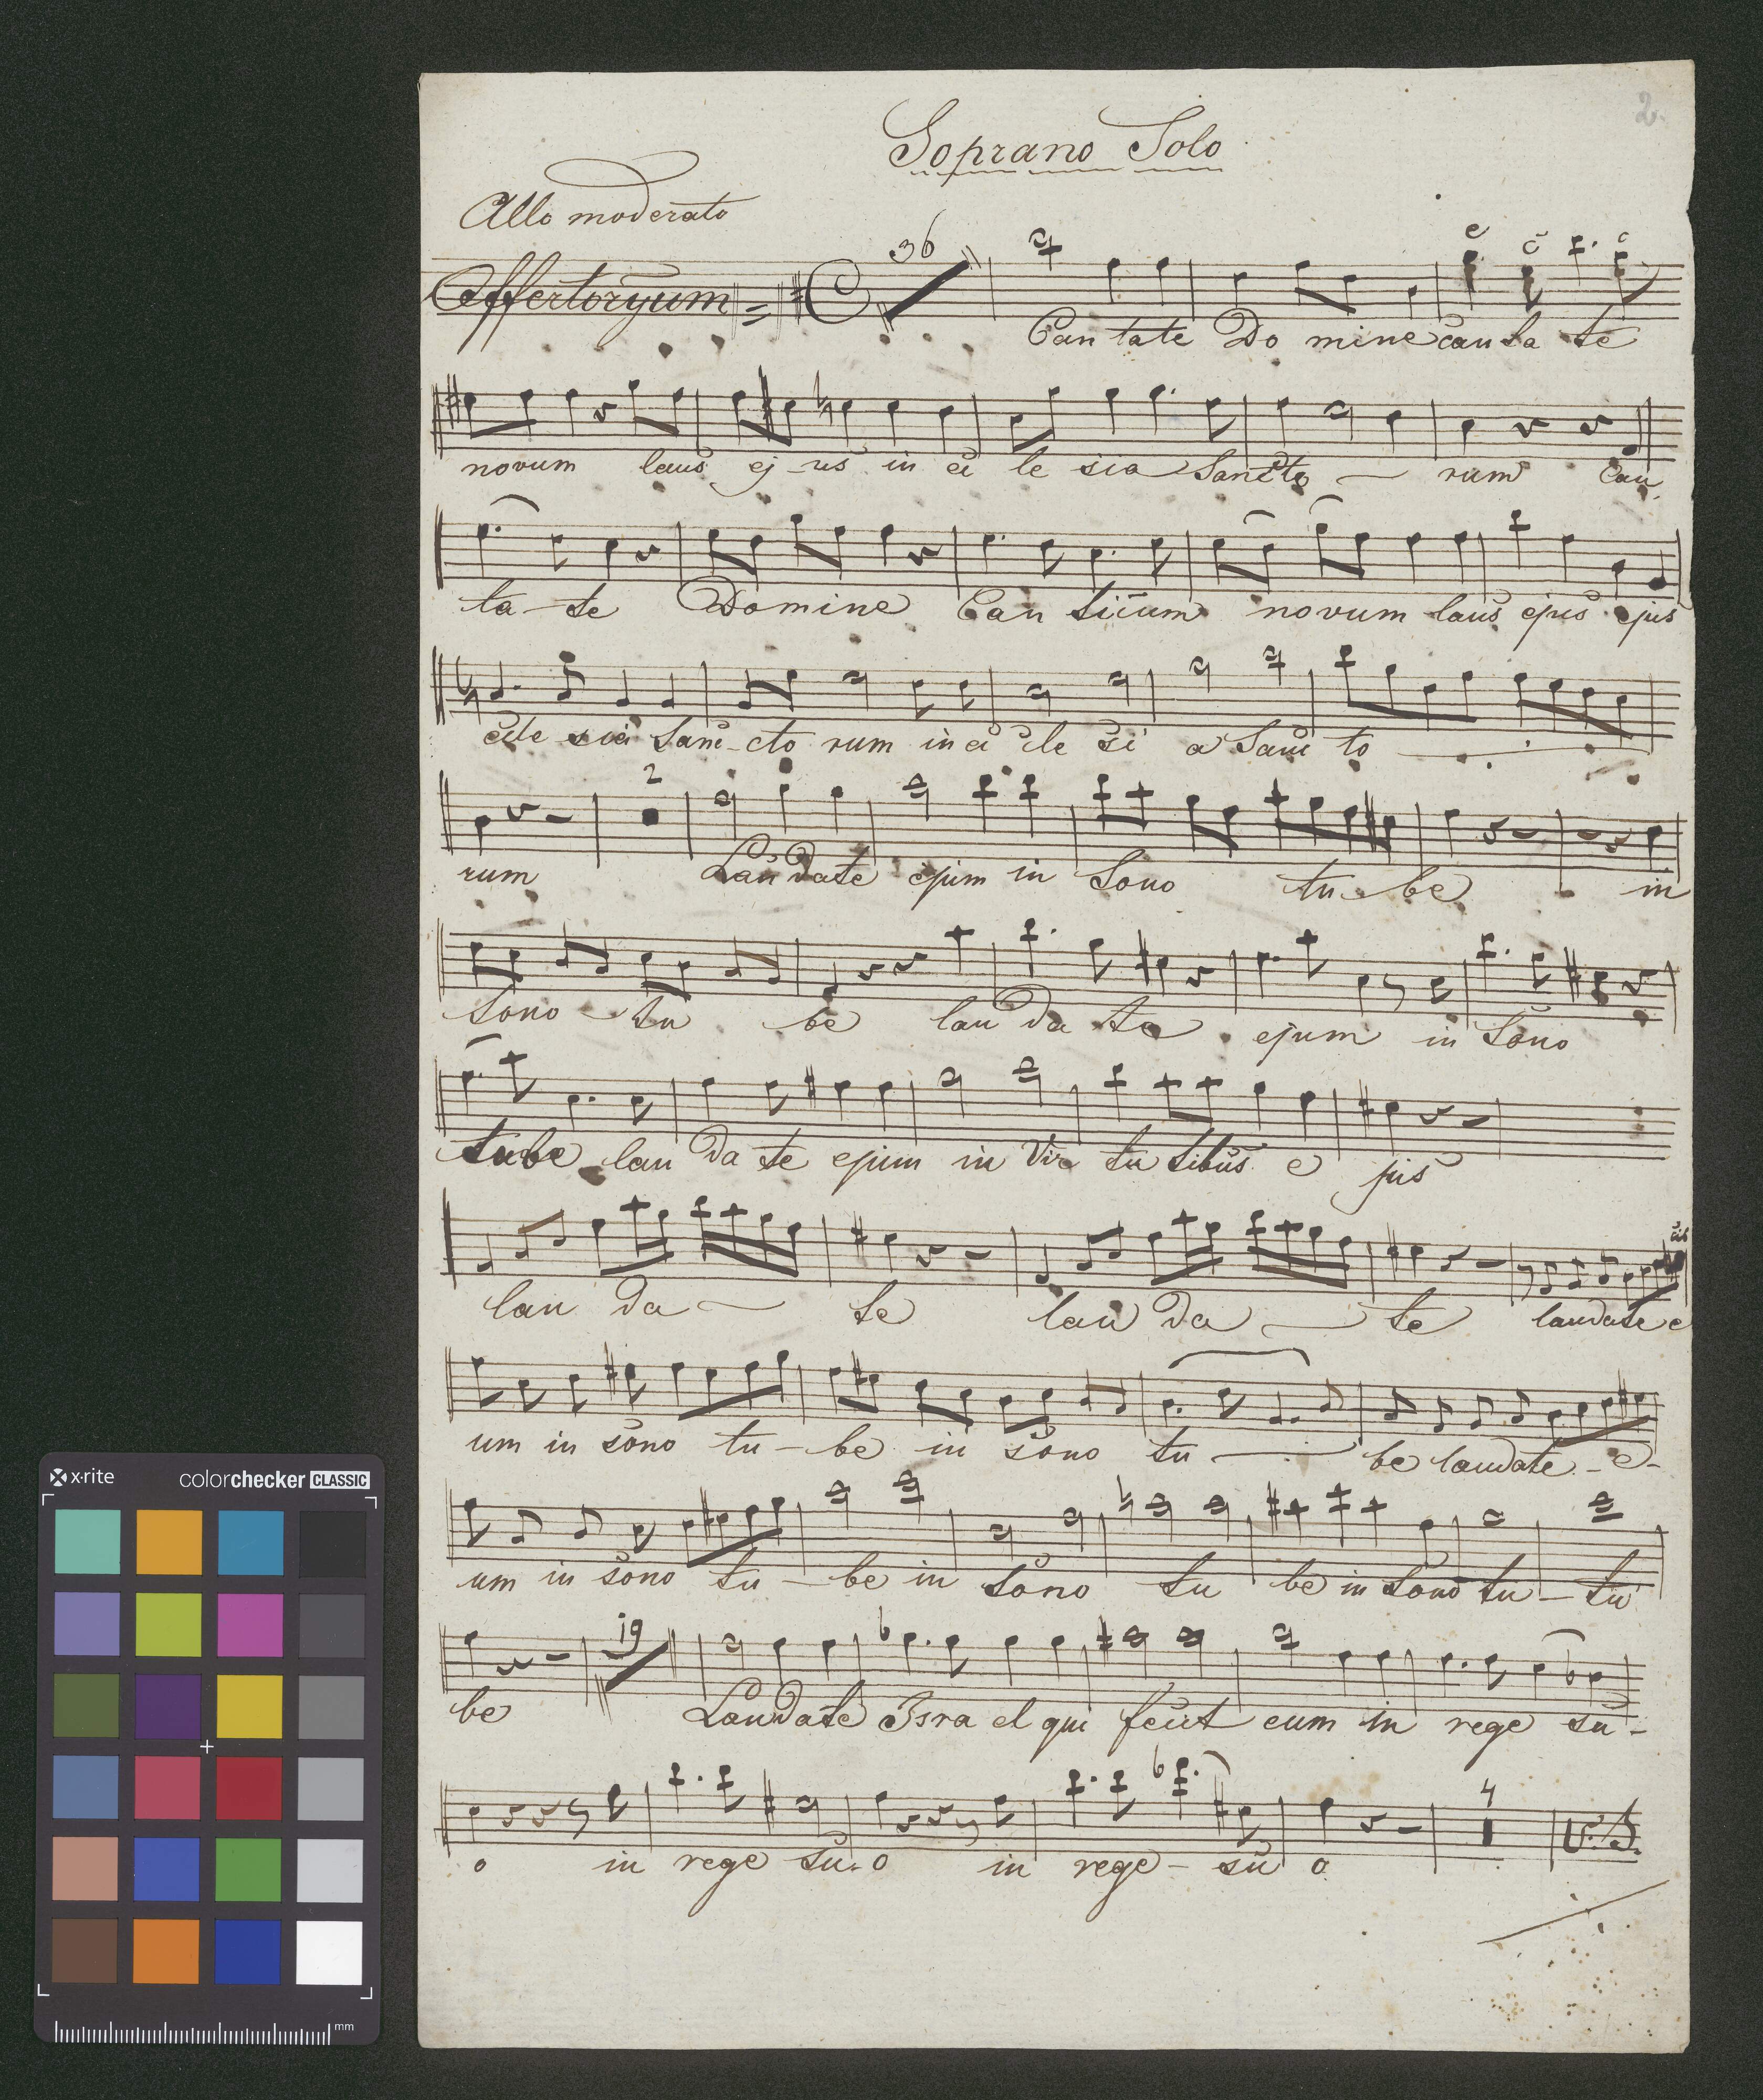 2.
Soprano Solo
Allo moderato
Offertoryum
36
e c c
Can tate Do mine can ta te
novum laus ej us in ec le sia Sancto - rum Can
ta - te Domine Can ticum novum laus ejus ejus
ecle sia Sanc - cto rum in ec cle si a Sanc to
2
rum Laudate ejum in Sono tu - be in
Sono - tu be lau da te ejum in Sono
tube lau da te ejum in Vir tu tibus e jus
cis
lau da - te lau da - te laudate e
um in sono tu - be in sono tu - be laudate - e -
um in sono tu - be in sono tu be in sono tu - tu
19
be Laudate Isra el qui fecit eum in rege su -
4
o in rege su - o in rege - su o
V. S.
x·rite colorchecker CLASSIC
mm